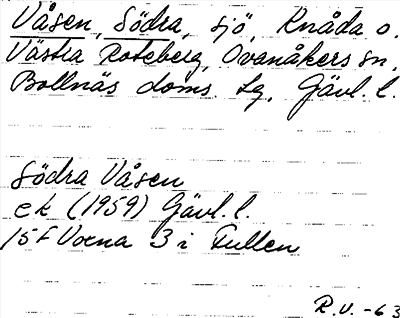 Våsen, Södra, sjö, Knåda o.
Västra Roteberg, Ovanåkers sn,
Bollnäs doms. tg, Gävl. l.
Södra Våsen
ek (1959) Gävl. l.
15F Voxna 3 i Fullen
R.V. -63